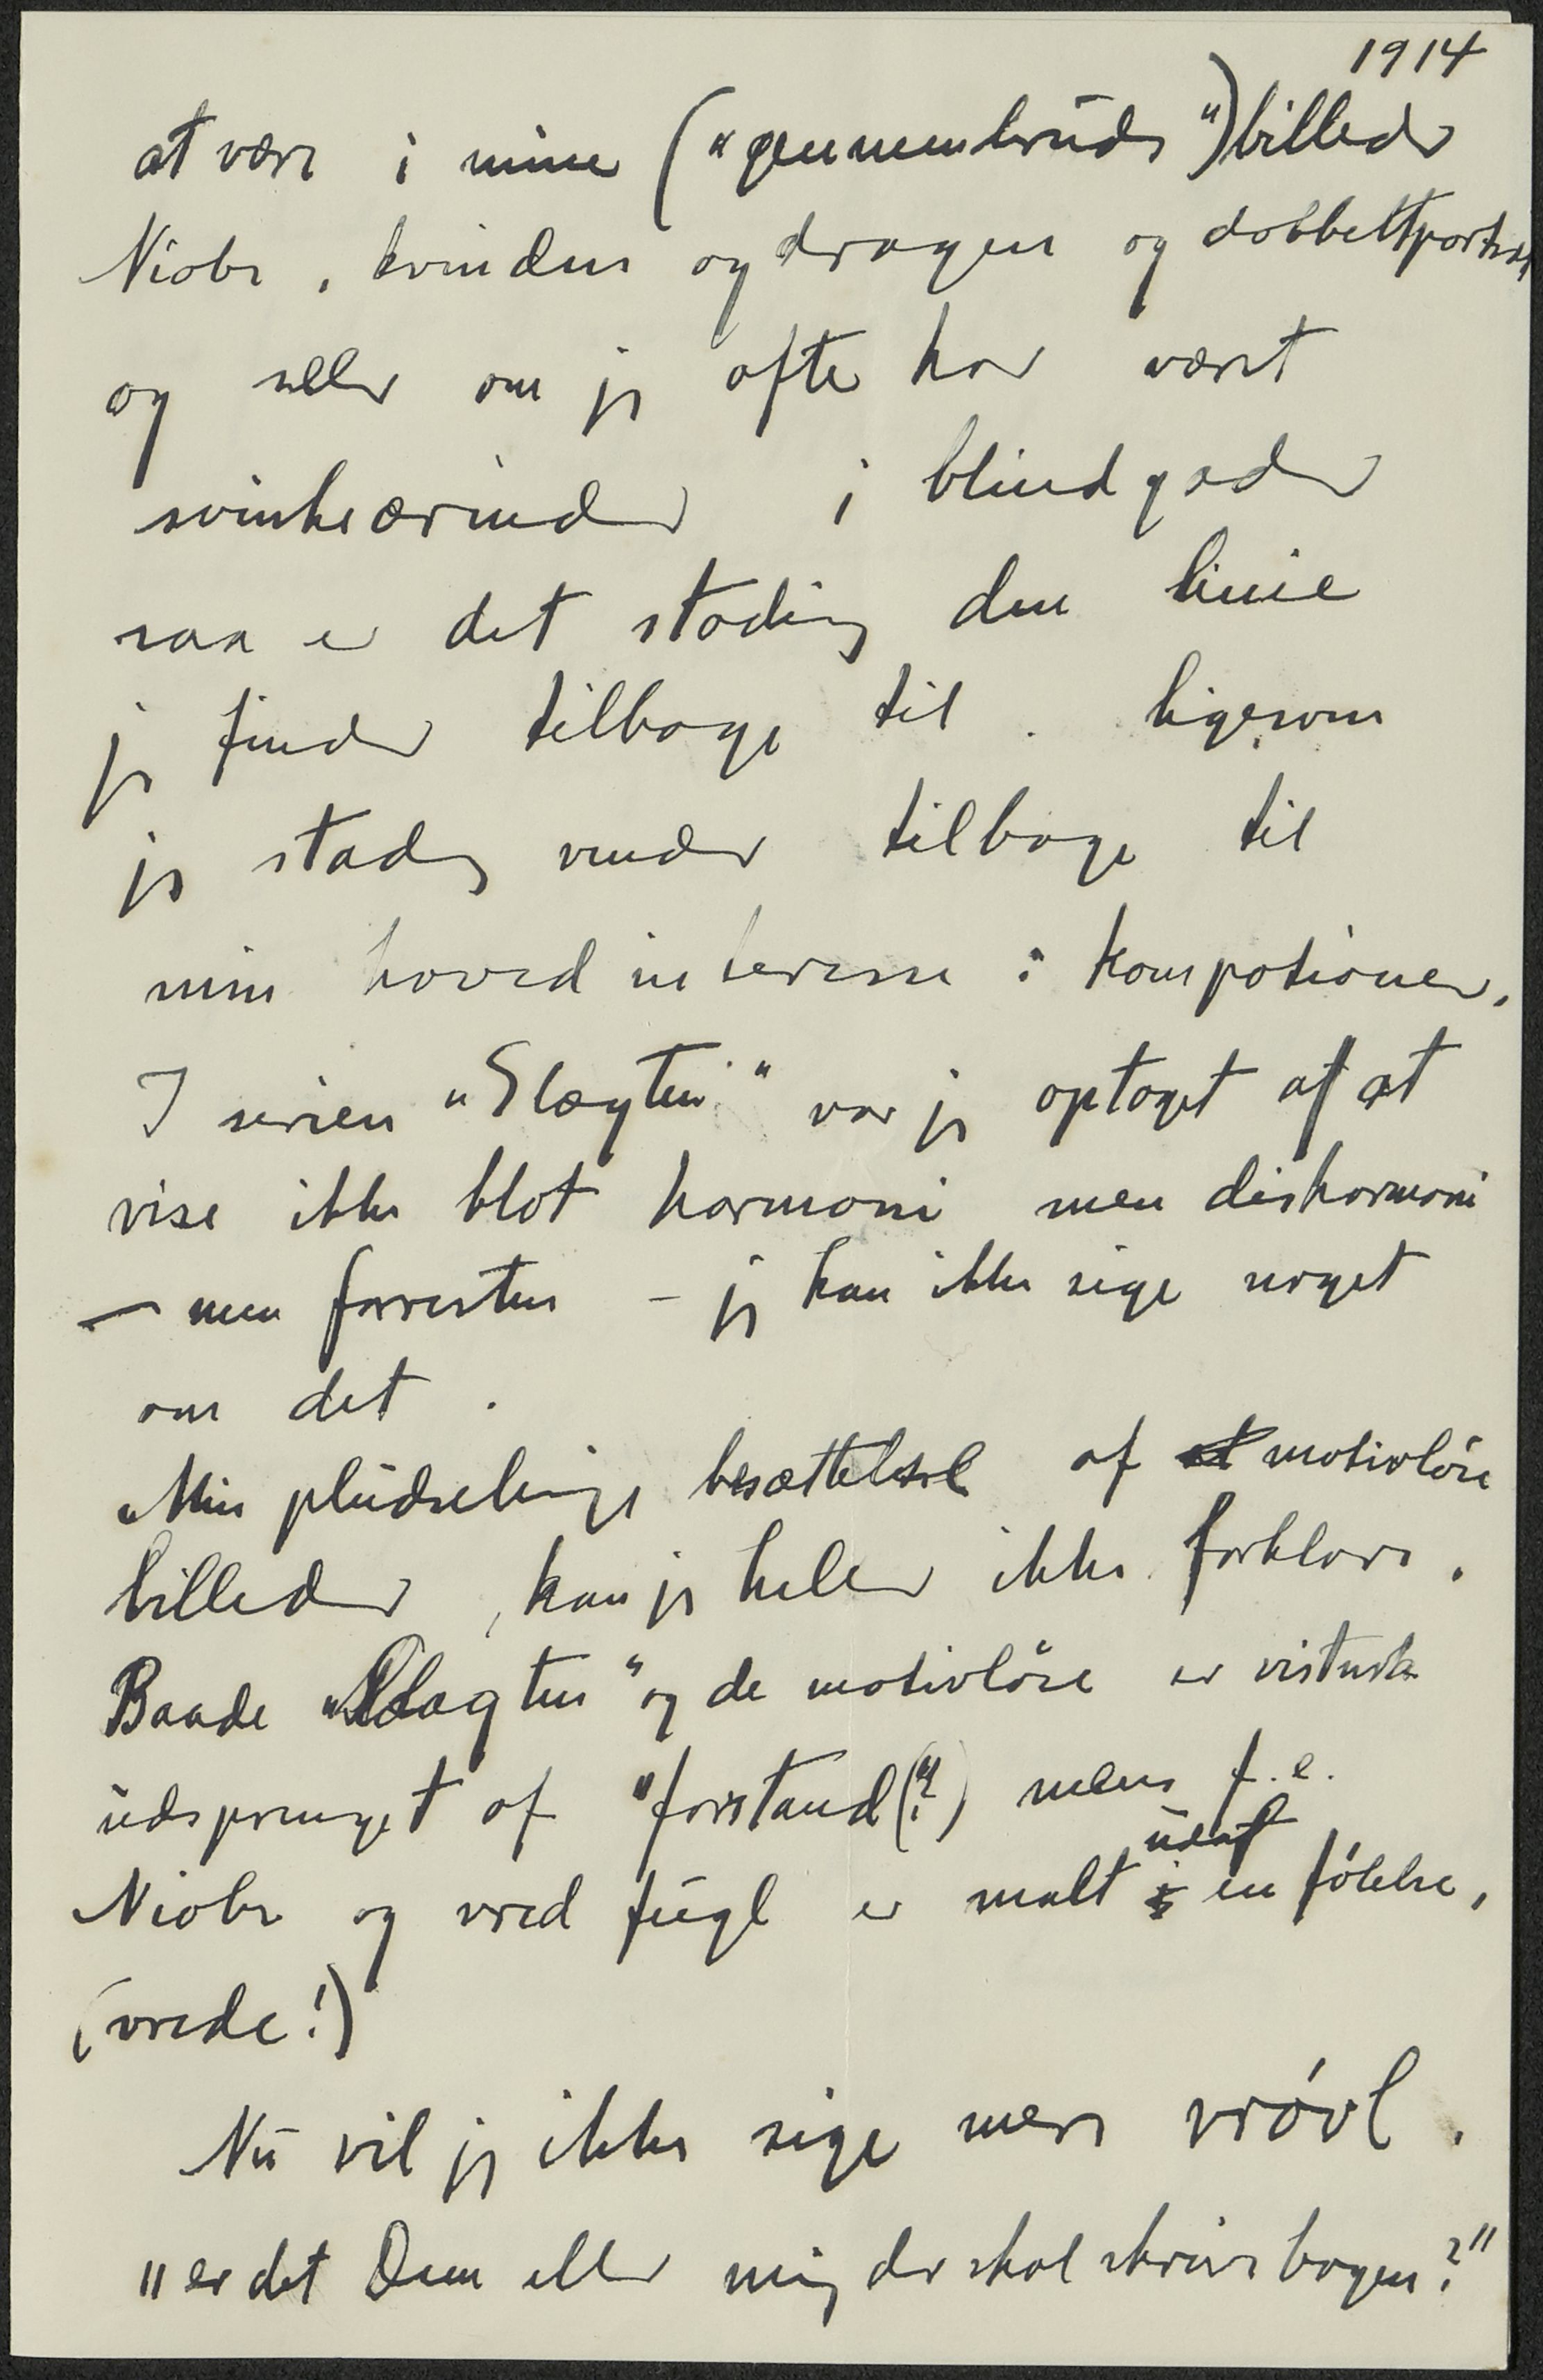 1914
at være i mine („gennembruds“)billeder
Niobe, kvinden og dragen og dobbeltportræt
og selv om jeg ofte har været
svinkeærinder i blindgader
saa er det stadig den linie
jeg finder tilbage til. ligesom
jeg stadig vender tilbage til
min hovedinteresse: kompotionen.
I serien „Slægten“ var jeg optaget af at
vise ikke blot harmoni men disharmoni
– men forresten – jeg kan ikke sige noget
om det.
Min pludselige besættelse af motivløse
billeder, kan jeg heller ikke forklare.
Baade „Slægten“ og de motivløse er vistnok
udsprunget af "forstand(?") mens f.e.
Niobe og vred fugl er malt udaf en følelse,
(vrede!)
Nu vil jeg ikke sige mere vrøvl.
"er det Dem eller mig der skal skrive bogen?"